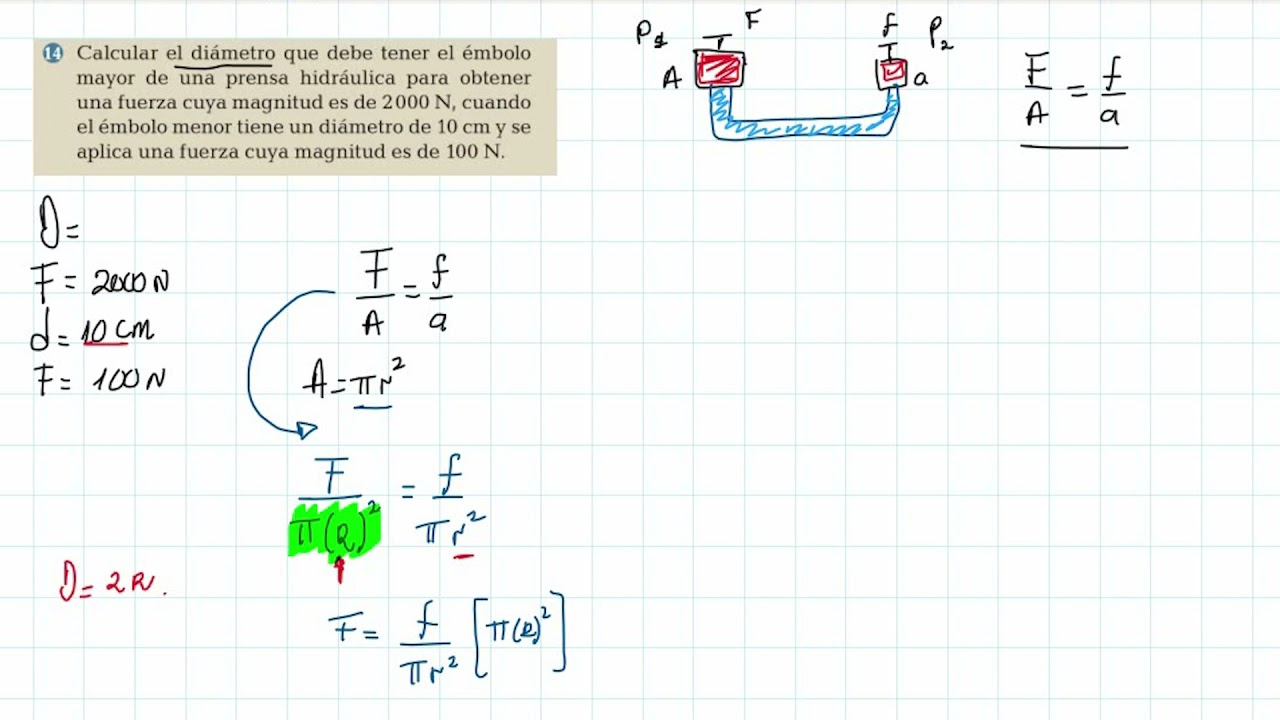 14 Calcular el diámetro que debe tener el émbolo
mayor de una prensa hidráulica para obtener
una fuerza cuya magnitud es de 2 000 N, cuando
el émbolo menor tiene un diámetro de 10 cm y se
aplica una fuerza cuya magnitud es de 100 N.
P1 F f P2
A a
F/A = f/a
D=
F= 2000 N
d= 10 cm
F= 100 N
F/A = f/a
A= πr²
F/π(R)² = f/πr²
D= 2R.
F= f/πr² [π(R)²]